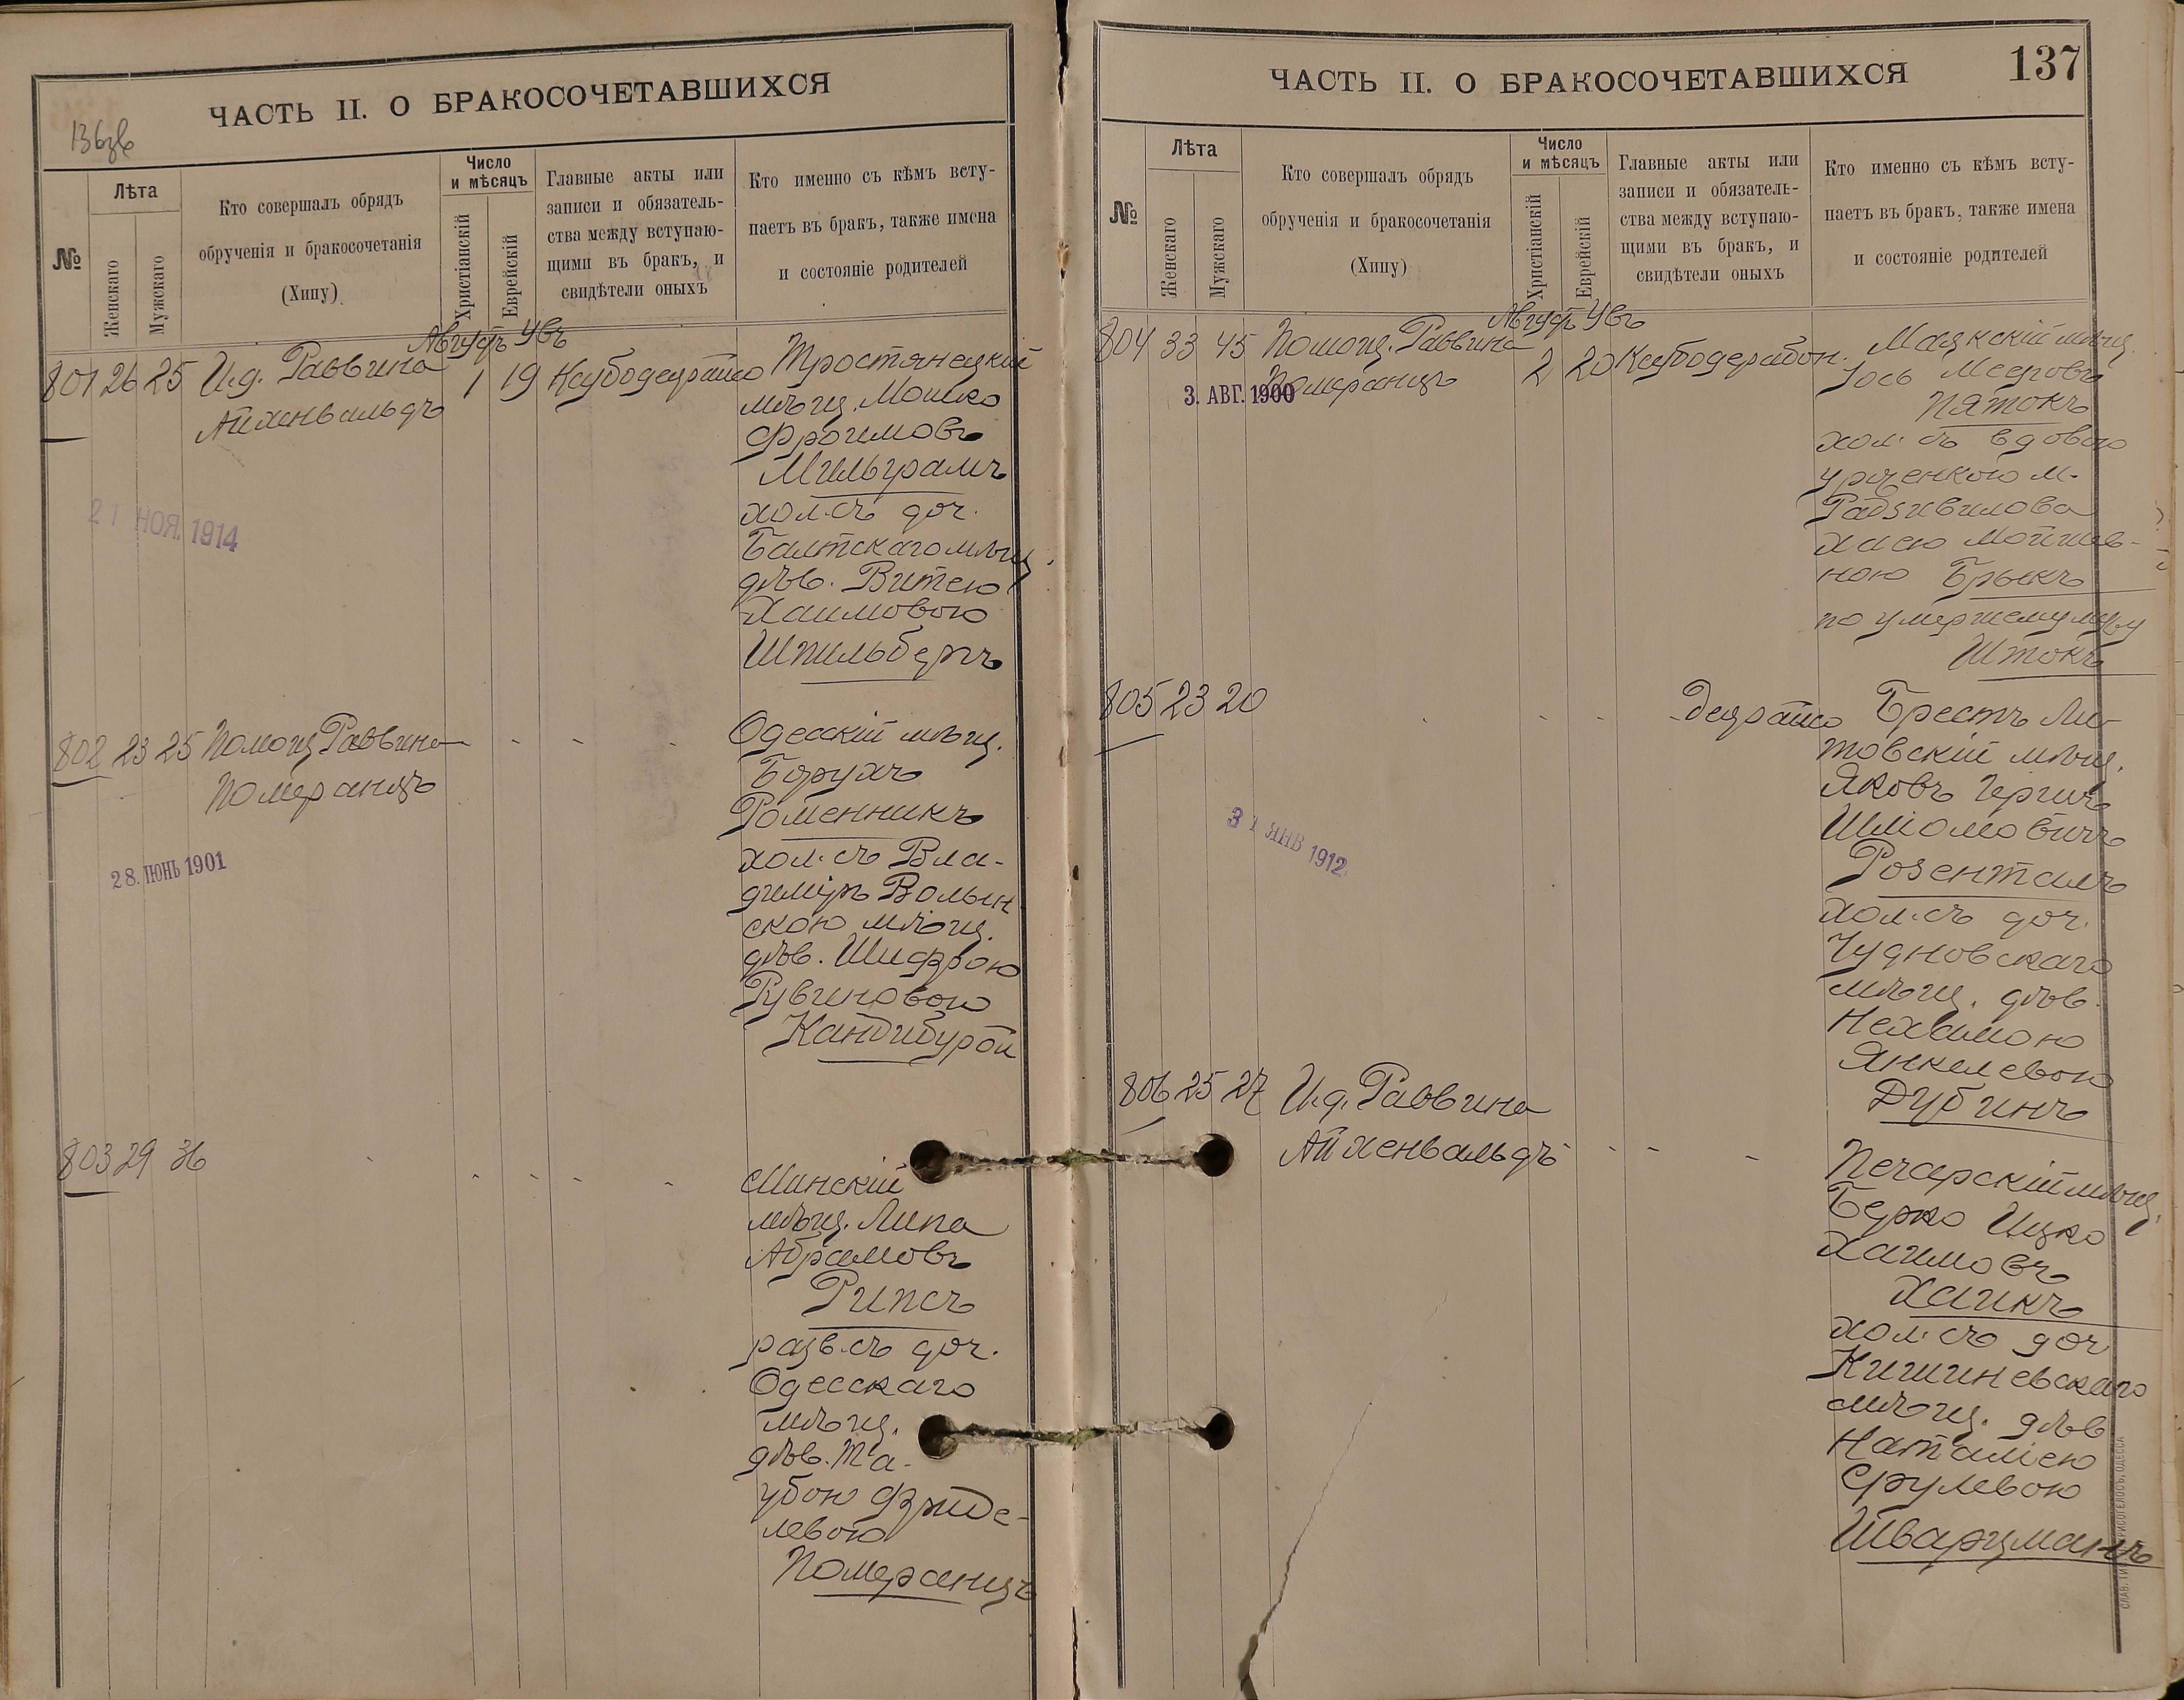 ЧАСТЬ II. О БРАКОСОЧЕТАВШИХСЯ
136зв
№
Лѣта
Женскаго
Мужскаго
Кто совершалъ обрядъ
обрученія и бракосочетанія
(Хипу)
Число
и мѣсяцъ
Христіанскій
Еврейскій
Главные акты или
записи и обязатель-
ства между вступаю-
щими въ бракъ, и
свидѣтели оныхъ
Кто именно съ кѣмъ всту-
паетъ въ бракъ, также имена
и состояніе родителей
Августъ Увъ
801 26 25 И.д. Раввина 1 19 Тростянецкій
Айхенвальдъ
мѣщ. Мошко
Фроимовъ
Мильграмъ
хол. съ доч.
Балтскаго мѣщ.
дѣв. Витею
Хаимовою
Шпильбергъ
21 НОЯ. 1914
802 23 25 Помощ. Раввина
Померанцъ
Одесскій мѣщ.
Борухъ
Роменникъ
хол. съ Вла-
диміръ Волын
скою мѣщ.
дѣв. Шифрою
Рувиновою
Кандибурой
28. ІЮНЬ 1901
803 29 36
Минскій
мѣщ. Липа
Абрамовъ
Рипсъ
разв. съ доч.
Одесскаго
мѣщ.
дѣв. Та-
убою Фриде-
левою
Померанцъ
ЧАСТЬ II. О БРАКОСОЧЕТАВШИХСЯ
137
№
Лѣта
Женскаго
Мужскаго
Кто совершалъ обрядъ
обрученія и бракосочетанія
(Хипу)
Число
и мѣсяцъ
Христіанскій
Еврейскій
Главные акты или
записи и обязатель-
ства между вступаю-
щими въ бракъ, и
свидѣтели оныхъ
Кто именно съ кѣмъ всту-
паетъ въ бракъ, также имена
и состояніе родителей
Августъ Увъ
804 33 45 Помощ. Раввина 2 20 Маякскій мѣщ.
Померанцъ
3. АВГ. 1900
Іось Мееровъ
Пятокъ
хол. съ вдовою
урженкою м.
Радзивилова
Хаею Мошков-
ною Брыкъ
по умершему мужу
Штокъ
805 23 20
Брестъ Ли-
товскій мѣщ.
Яковъ Гершъ
Шліомовичъ
Розенталъ
хол. съ доч.
Чудновскаго
мѣщ. дѣв.
Нехамою
Янкелевою
Дубинъ
31 ЯНВ 1912
806 25 27 И.д. Раввина
Айхенвальдъ
Печарскій мѣщ.
Берко Ицко
Хаимовъ
Хаикъ
хол. съ доч
Кишиневскаго
мѣщ. дѣв
Наталіею
Срулевою
Шварцманъ